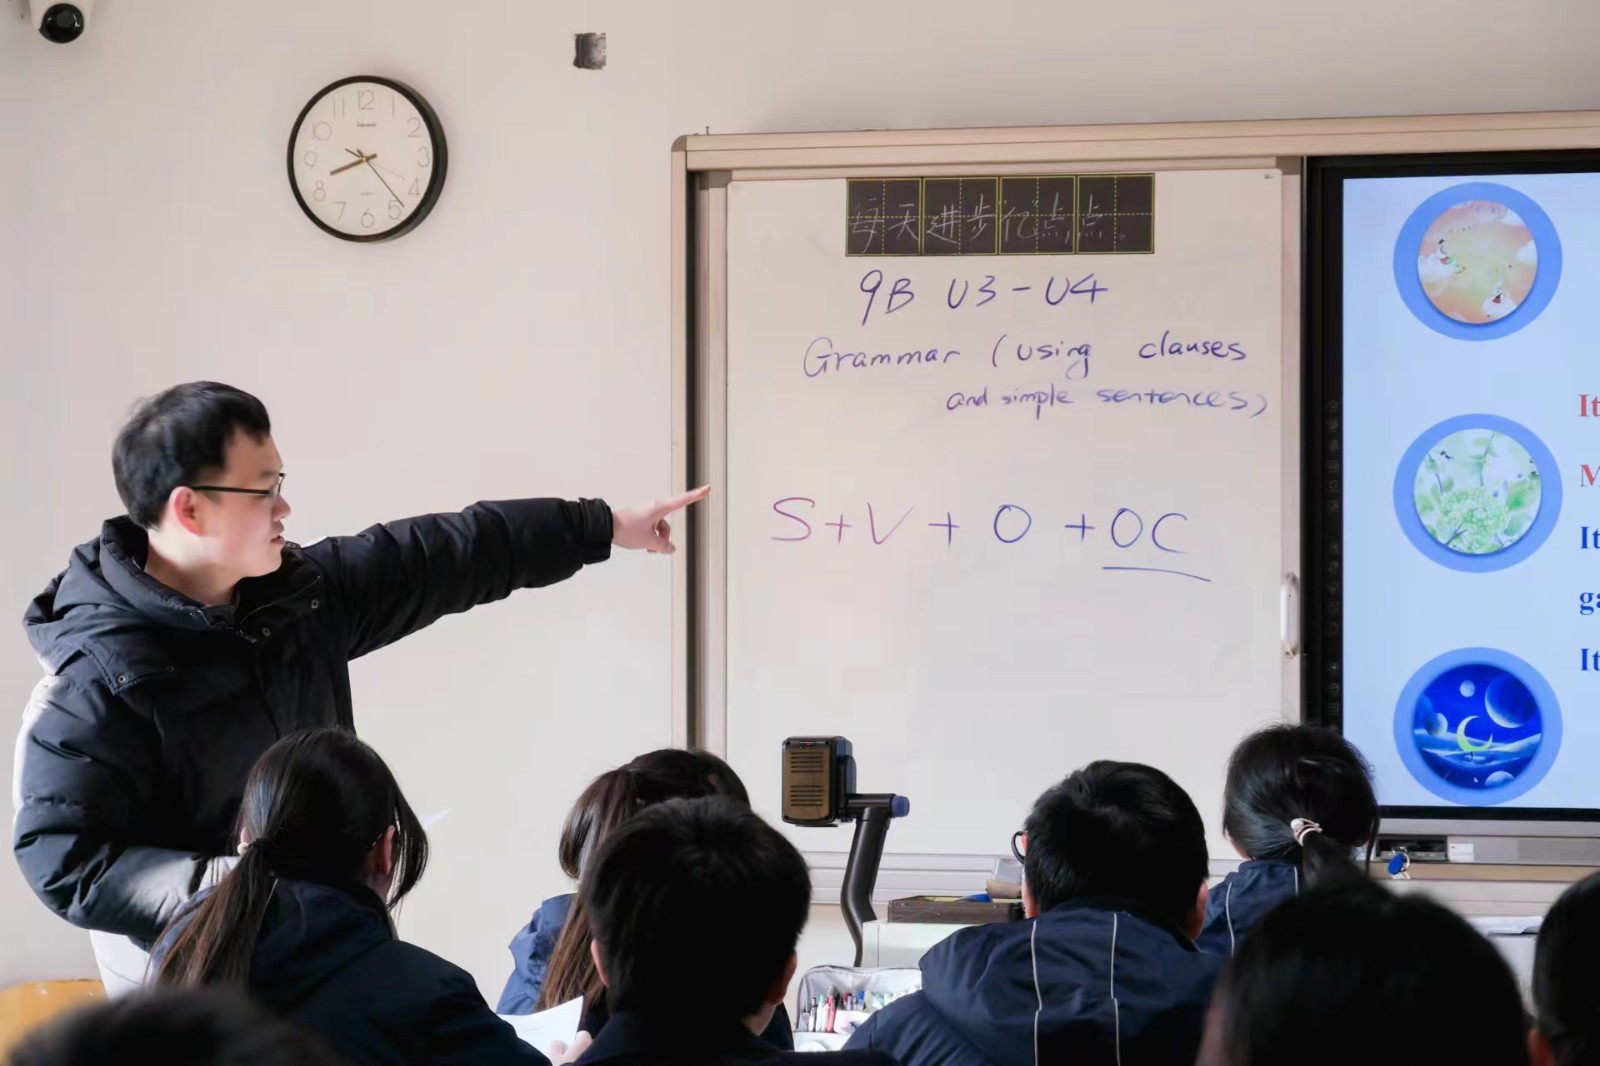 12
11 1
10 2
9 3
8 4
7 5
6
每天进步亿点点。
9B U3-U4
Grammar (using clauses
and simple sentences)
S+V+O+OC
It
M
It
ga
It